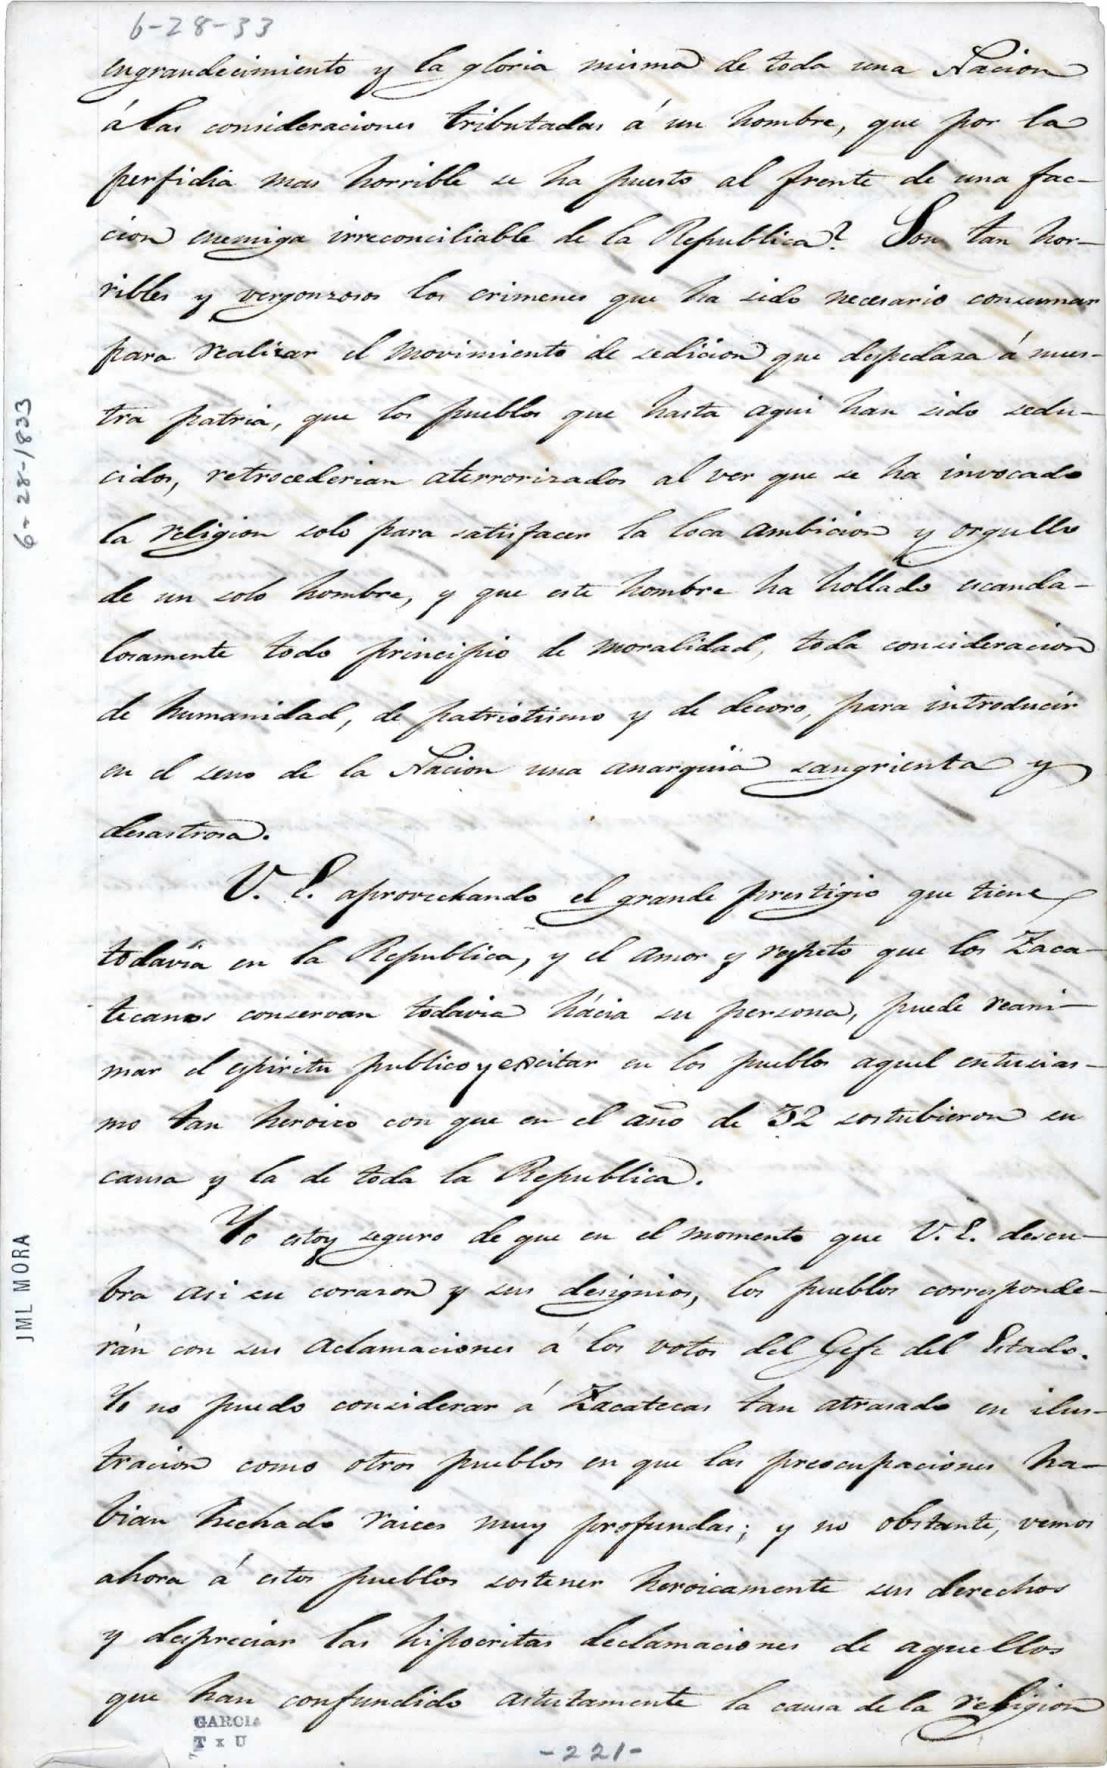 6-28-33
engrandecimiento y la gloria misma de toda una Nacion
á las consideraciones tributadas á un hombre, que por la
perfidia mas horrible se ha puesto al frente de una fac-
cion enemiga irreconciliable de la Republica? Son tan hor-
ribles y vergonzosos los crimenes que ha sido necesario consumar
para realizar el movimiento de sedicion que despedaza á nues-
tra patria, que los pueblos que hasta aqui han sido sedu-
cidos, retrocederian aterrorizados al ver que se ha invocado
la religion solo para satisfacer la loca ambicion y orgullo
de un solo hombre, y que este hombre ha hollado escanda-
losamente todo principio de moralidad, toda consideracion
de humanidad, de patriotismo y de decoro, para introducir
en el seno de la Nacion una anarquia sangrienta y
desastrosa.
V. E. aprovechando el grande prestigio que tiene
todavia en la Republica, y el amor y respeto que los Zaca-
tecanos conservan todavia hácia su persona, puede reani-
mar el espiritu publico y excitar en los pueblos aquel entusias-
mo tan heroico con que en el año de 32 sostubieron su
causa y la de toda la Republica.
Yo estoy seguro de que en el momento que V. E. descu-
bra asi su corazon y sus designios, los pueblos corresponde-
rán con sus aclamaciones á los votos del Gefe del Estado.
Yo no puedo considerar á Zacatecas tan atrasado en ilus-
tracion como otros pueblos en que las preocupaciones ha-
bian hechado raices muy profundas; y no obstante, vemos
ahora á estos pueblos sostener heroicamente sus derechos
y despreciar las hipocritas declamaciones de aquellos
que han confundido astutamente la causa de la religion
GARCIA
T x U
-221-
6-28-1833
JML MORA